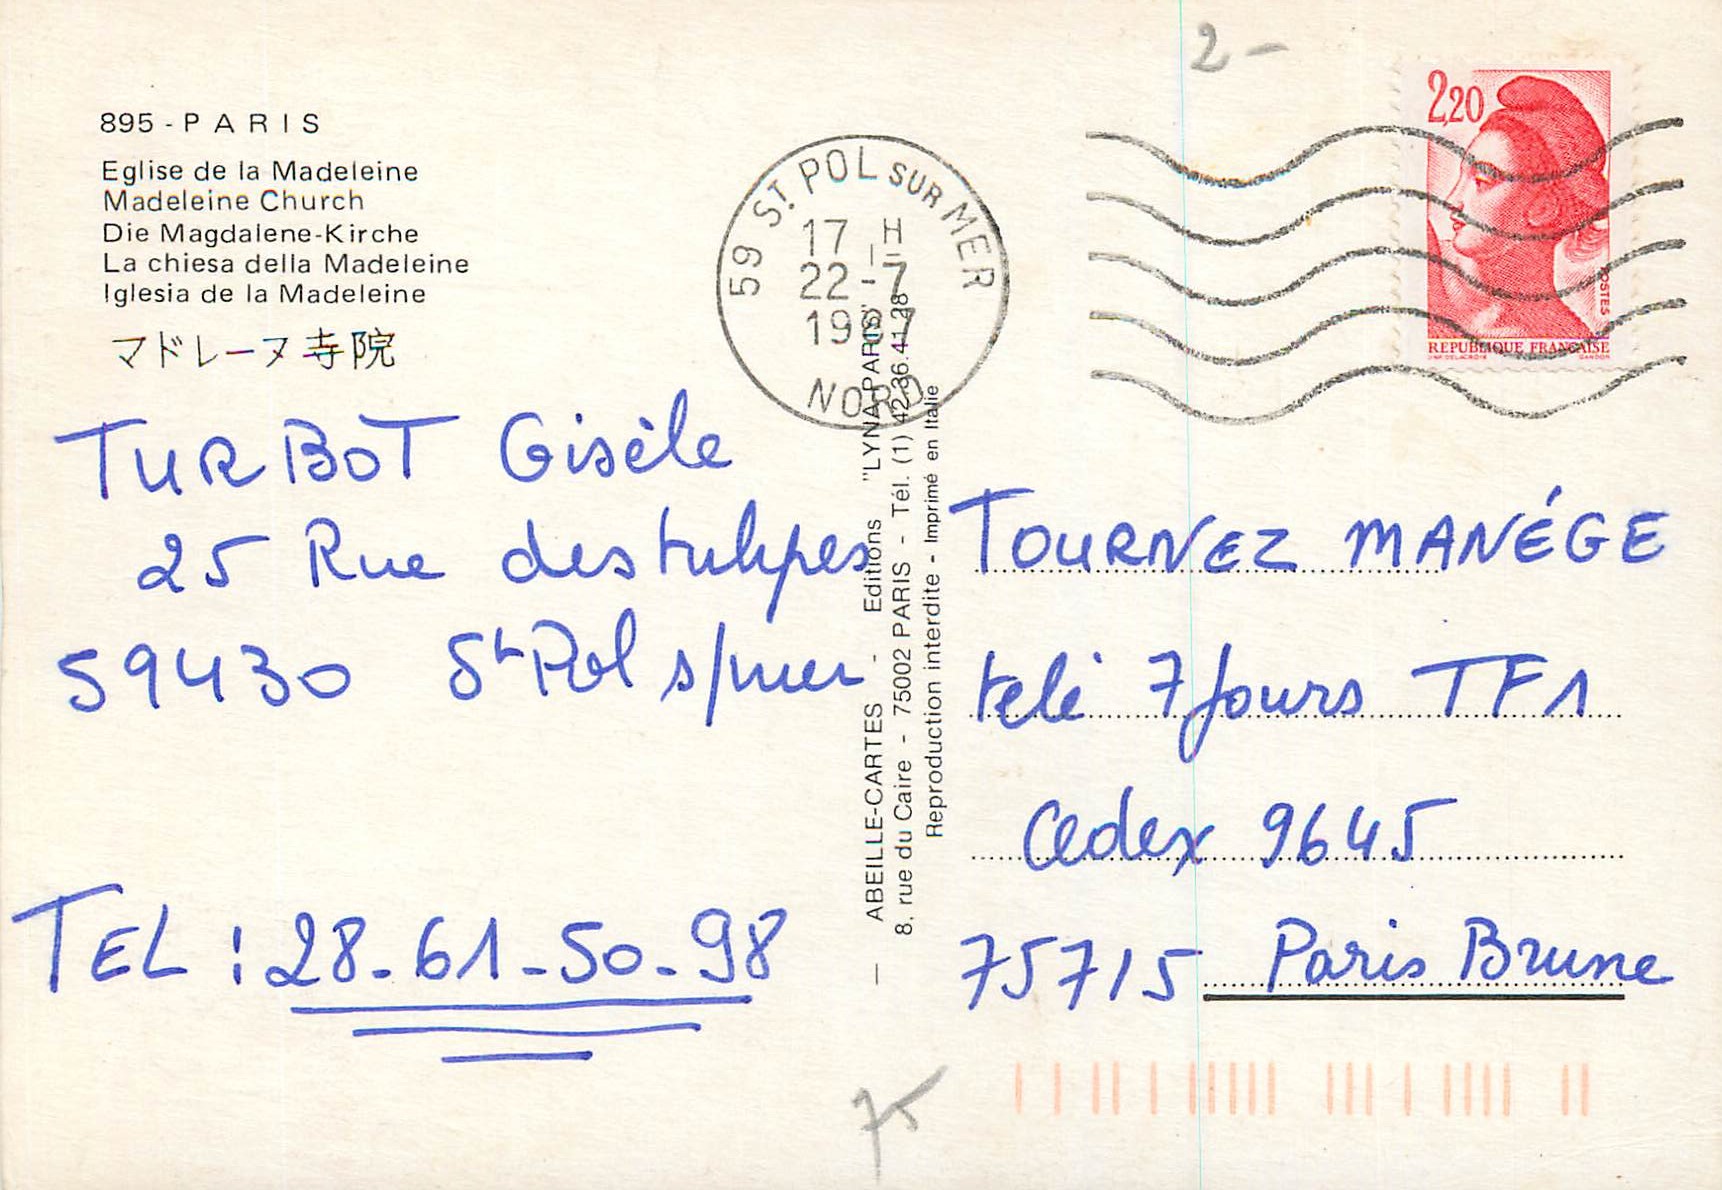 2-
895 - PARIS
Eglise de la Madeleine
Madeleine Church
Die Magdalene-Kirche
La chiesa della Madeleine
Iglesia de la Madeleine
マドレーヌ寺院
59 ST. POL SUR MER
17 H
22-7
1987
NORD
2,20
POSTES
REPUBLIQUE FRANÇAISE
TURBOT Gisèle
25 Rue des tulipes
59430 St Pol s/mer
TEL : 28-61-50-98
ABEILLE-CARTES - Editions "LYNA-PARIS"
8, rue du Caire - 75002 PARIS - Tél. (1) 42.36.41.28
Reproduction interdite - Imprimé en Italie
TOURNEZ MANÉGE
télé 7 jours TF1
Cedex 9645
75715 Paris Brune
75